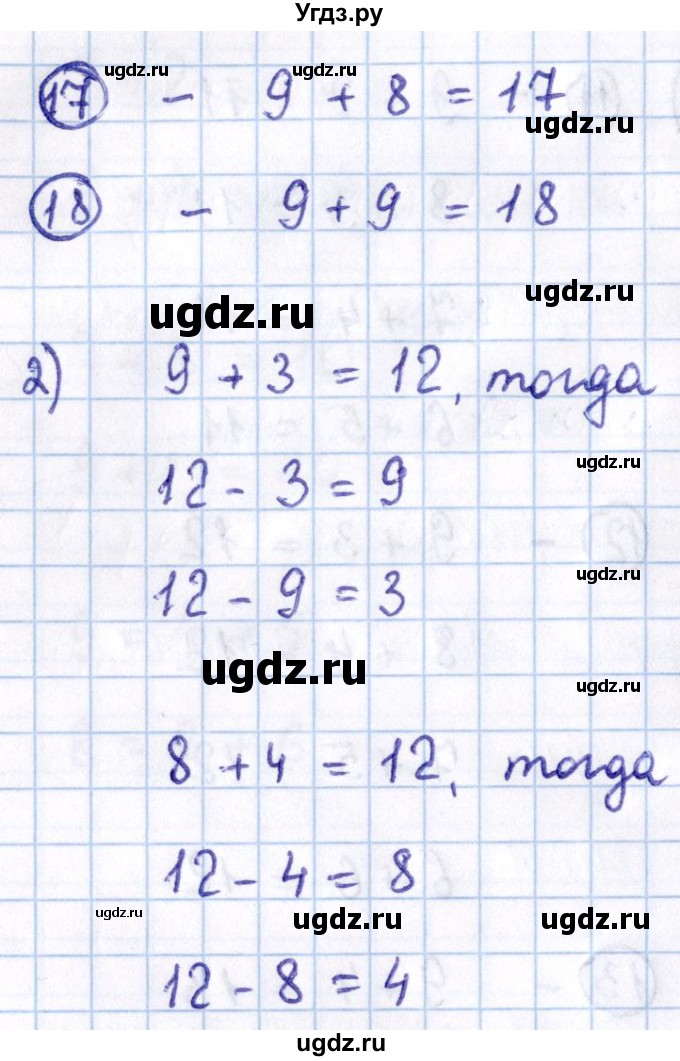 Угдз.ру
ugdz.ru ugdz.ru
17 - 9 + 8 = 17
ugdz.ru
18 - 9 + 9 = 18
ugdz.ru
ugdz.ru
2) 9 + 3 = 12, тогда
12 - 3 = 9
ugdz.ru
12 - 9 = 3
ugdz.ru
ugdz.ru
ugdz.ru
8 + 4 = 12, тогда
12 - 4 = 8
ugdz.ru ugdz.ru ugdz.ru
12 - 8 = 4
ugdz.ru